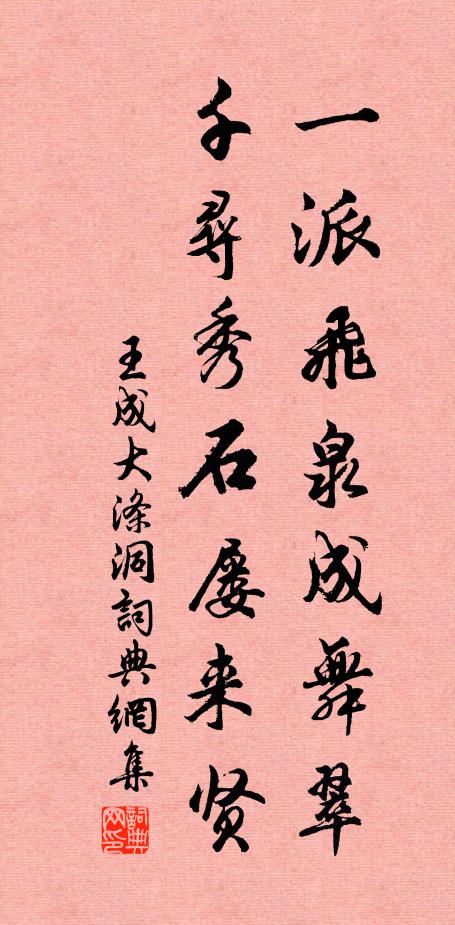 一派飛泉成舞翠
千尋秀石屡来贤
王成大滌洞詞典網集
詞典网印